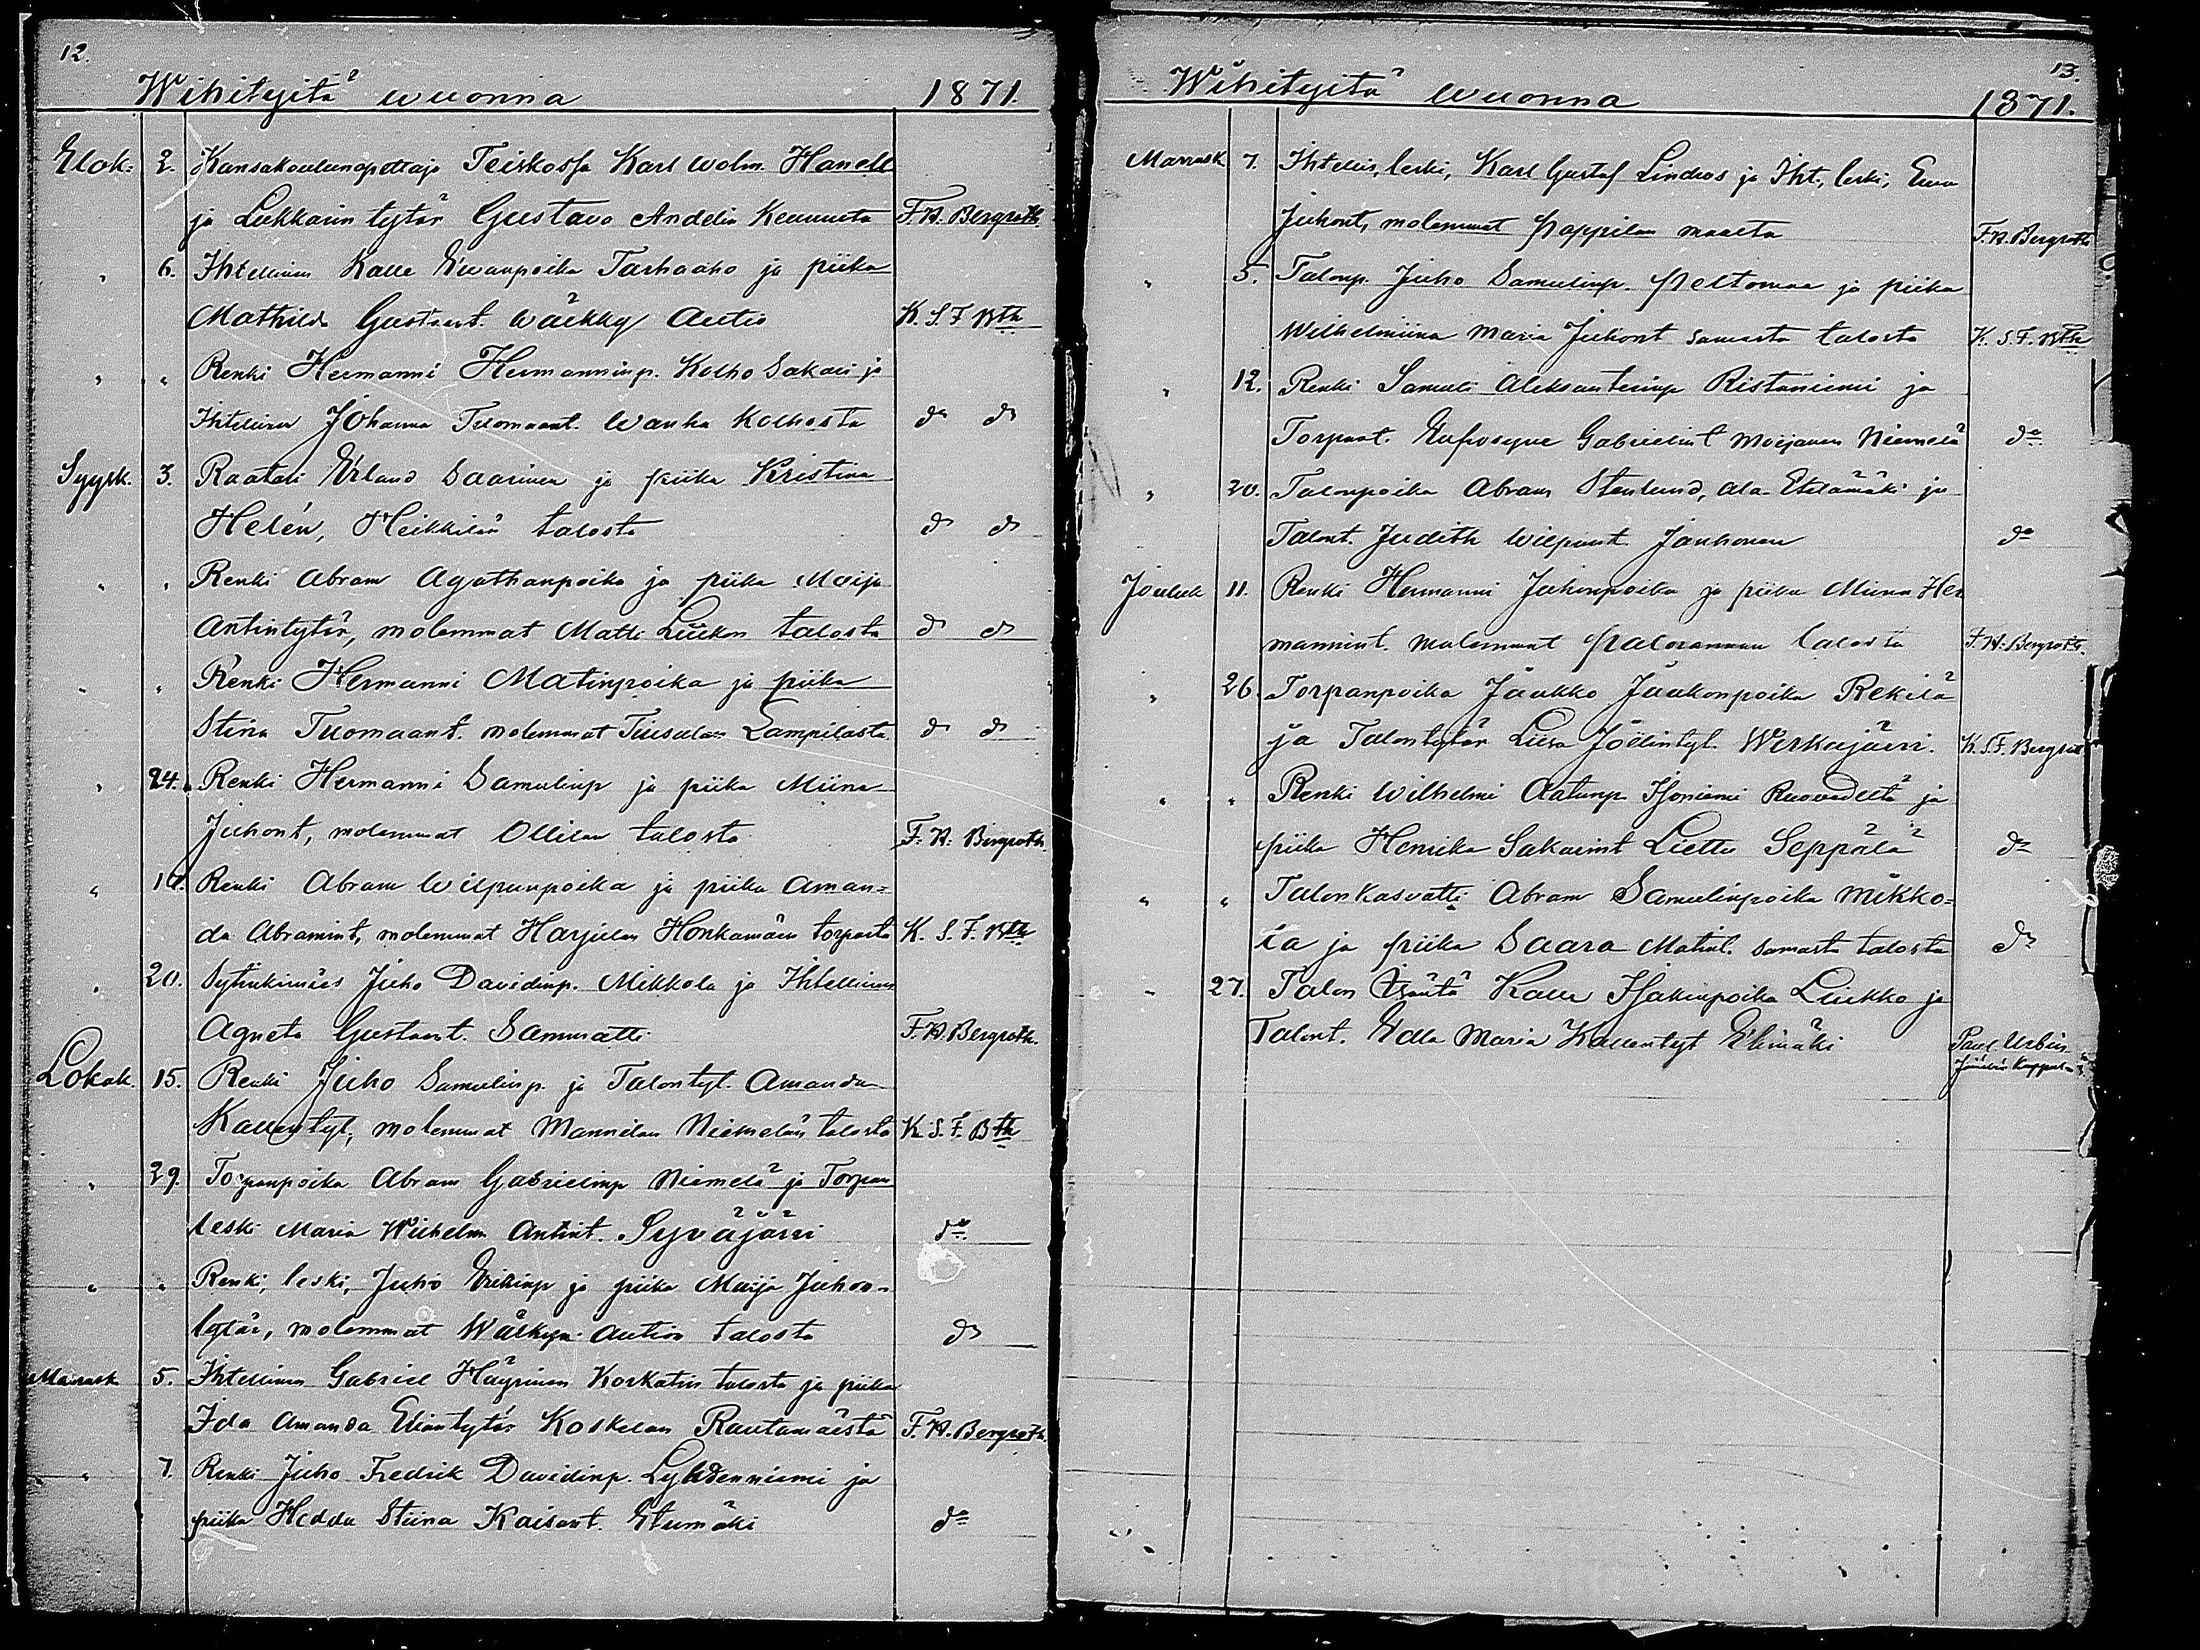 12.
Wihityitä wuonna 1871.
Elok: 2. Kansakoulunopettaja Teiskossa Karl Wolm. Hanell
ja Lukkarin tytär Gustava Andelin Keuruulta F. H. Bergroth.
" 6. Ihtellinen Kalle Ewanpoika Tarhaaho ja piika
Mathilda Gustavt. Wäkky Autio K. S. F. Bth
" " Renki Hermanni Hermanninp. Kolho Sakari ja
Ihtellinen Johanna Tuomaant. Wanha Kolhosta do do
Syysk. 3. Raatali Erland Saarinen ja piika Kristina
Helén, Heikkilän talosta do do
" " Renki Abram Agathanpoika ja piika Maija
Antintytär, molemmat Matti Liukon talosta do do
" " Renki Hermanni Matinpoika ja piika
Stina Tuomaant. molemmat Tiusalan Lampilasta do do
" 24. Renki Hermanni Samulinp ja piika Miina
Juhont, molemmat Ollilan talosta F. H. Bergroth.
" 10. Renki Abram Wilpunpoika ja piika Aman=
da Abramint, molemmat Harjulan Honkamäen torpasta K. S. F. Bth
" 20. Sytinkimies Juho Davidinp. Mikkola ja Ihtellinen
Agneta Gustavt. Sammatti F. H. Bergroth.
Lokak. 15. Renki Juho Samulinp. ja Talontyt. Amanda
Kallentyt, molemmat Mannilan Niemelän talosta K. S. F. Bth
" 29. Torpanpoika Abram Gabrielinp Niemelä ja Torpan
leski Maria Wilhelm. Antint. Syväjärvi do
" " Renki, leski, Juho Erikinp ja piika Maija Juhon=
tytär, molemmat Wälkyn Aution talosta do
Marrask 5. Ihtellinen Gabriel Häyrinen Korkatin talosta ja piika
Ida Amanda Eliantytär Koskelan Rautamäestä F. H. Bergroth.
" 7. Renki Juho Fredrik Davidinp. Lyhdenniemi ja
piika Hedda Stiina Kaisant. Etumäki do
13.
Wihityitä wuonna 1871.
Marrask 7. Ihtellis, leski, Karl Gustaf Lindros ja Iht., leski, Ewa
Juhont, molemmat Pappilan maalta F. H. Bergroth
" 5. Talonp. Juho Samulinp. Peltomaa ja piika
Wilhelmiina Maria Juhont samasta talosta K. S. F. Bth
" 12. Renki Samuli Aleksanterinp Ristaniemi ja
Torpant. Eufrosyne Gabrielint Moijanen Niemelä do
" 20. Talonpoika Abram Stenlund, Ala-Etelämäki ja
Talont. Judith Wilpunt. Jauhonen do
Jouluk 11. Renki Hermanni Juhonpoika ja piika Miina Her
mannint. molemmat Palorannan talosta F. H. Bergroth.
" 26. Torpanpoika Jaakko Jaakonpoika Rekilä
ja Talontytär Liisa Joelintyt. Wirkajärvi. K. S. F. Bergrot
" " Renki Wilhelmi Aatunp Isoniemi Ruovedeltä ja
piika Henrika Sakarint Liettu Seppälä do
" " Talon Kasvatti Abram Samulinpoika Mikko=
la ja piika Saara Matint. samasta talosta do
" 27. Talon Isäntä Kalle Isakinpoika Liukko ja
Talont. Edla Maria Kallentyt Elimäki Paul Urbin